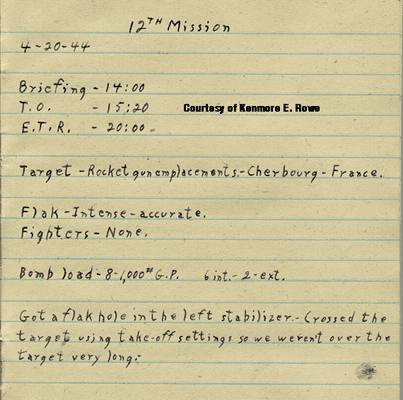 12TH Mission
4-20-44
Briefing - 14:00
T.O. - 15:20 Courtesy of Kenmore E. Rowe
E.T.R. - 20:00 -
Target - Rocket gun emplacements. - Cherbourg - France.
Flak - Intense - accurate.
Fighters - None.
Bomb load - 8-1,000# G.P. 6 int. - 2 - ext.
Got a flak hole in the left stabilizer. - Crossed the
target using take-off settings so we weren't over the
target very long. -